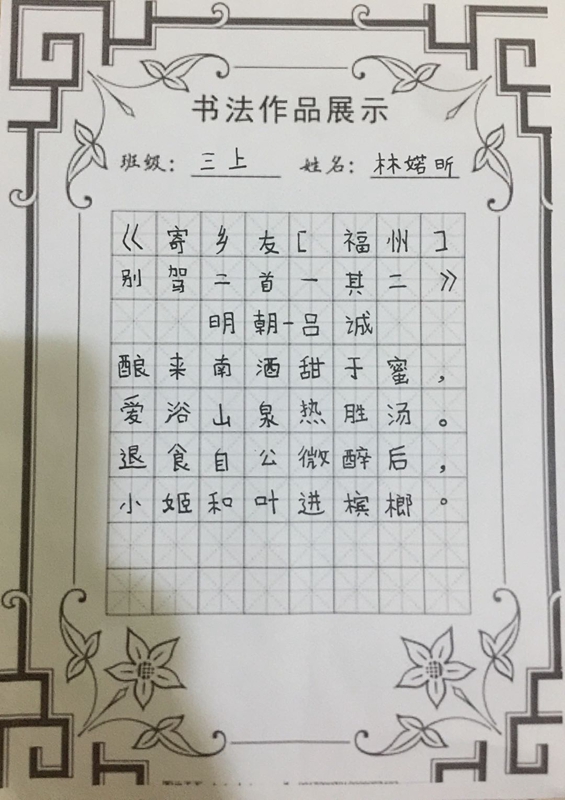 书法作品展示
班级：三上 姓名：林婼昕
《寄乡友[福州]
别驾二首一其二》
明朝-吕诚
酿来南酒甜于蜜，
爱浴山泉热胜汤。
退食自公微醉后，
小姬和叶进槟榔。